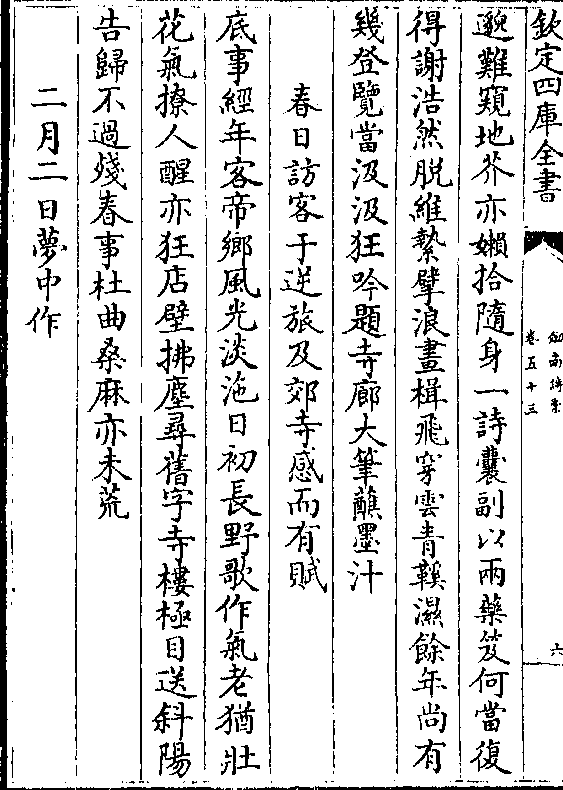 欽定四庫全書
劍南詩槀
卷五十三
六
邈難窺地芥亦嬾拾隨身一詩囊副以兩藥笈何當復
得謝浩然脱維縶擘浪畫楫飛穿雲青鞵濕餘年尚有
幾登覽當汲汲狂吟題寺廊大筆蘸墨汁
春日訪客于逆旅及郊寺感而有賦
底事經年客帝鄉風光淡沲日初長野歌作氣老猶壯
花氣撩人醒亦狂店壁拂塵尋舊字寺樓極目送斜陽
告歸不過殘春事杜曲桑麻亦未荒
二月二日夢中作